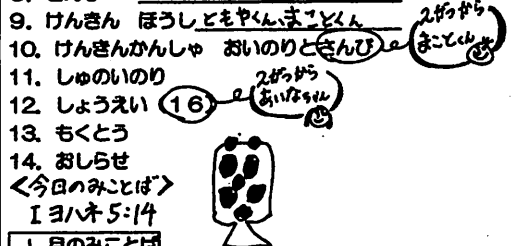 9. けんきん ほうし ともやくん、まことくん
10. けんきんかんしゃ おいのりとさんび
2がつから
まことくん
11. しゅのいのり
12. しょうえい 16
2がつから
あいなちゃん
13. もくとう
14. おしらせ
<今日のみことば>
I ヨハネ 5:14
月のみことば